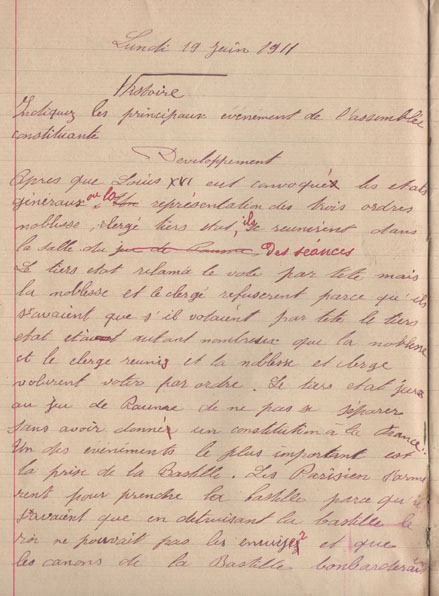 Lundi 19 juin 1911
Histoire
Indiquez les principaux événement de l'assemblée
constituante
Developpement
Apres que Louis XVI eut convoqué les etats
généraux ou la représentation des trois ordres
noblesse, clergé tiers etat, ils se reunirent dans
la salle du jeu de Paume Des séances
Le tiers etat relama le vote par tete mais
la noblesse et le clergé refuserent parce qu'ils
savaient que s'il votaient par tete le tiers
etat etait autant nombreux que la noblesse
et le clerge reunis et la noblesse et clerge
voulurent voter par ordre. Le tiers etat jura
au jeu de Paume de ne pas se séparer
sans avoir donné un constitution à la France.
Un des événements le plus important est
la prise de la Bastille. Les Parisien s'arme
rent pour prendre la bastille parce qu'il
savaient que en detruisant la bastille le
roi ne pouvait pas les 2 et que
les canons de la Bastille bonbarderai